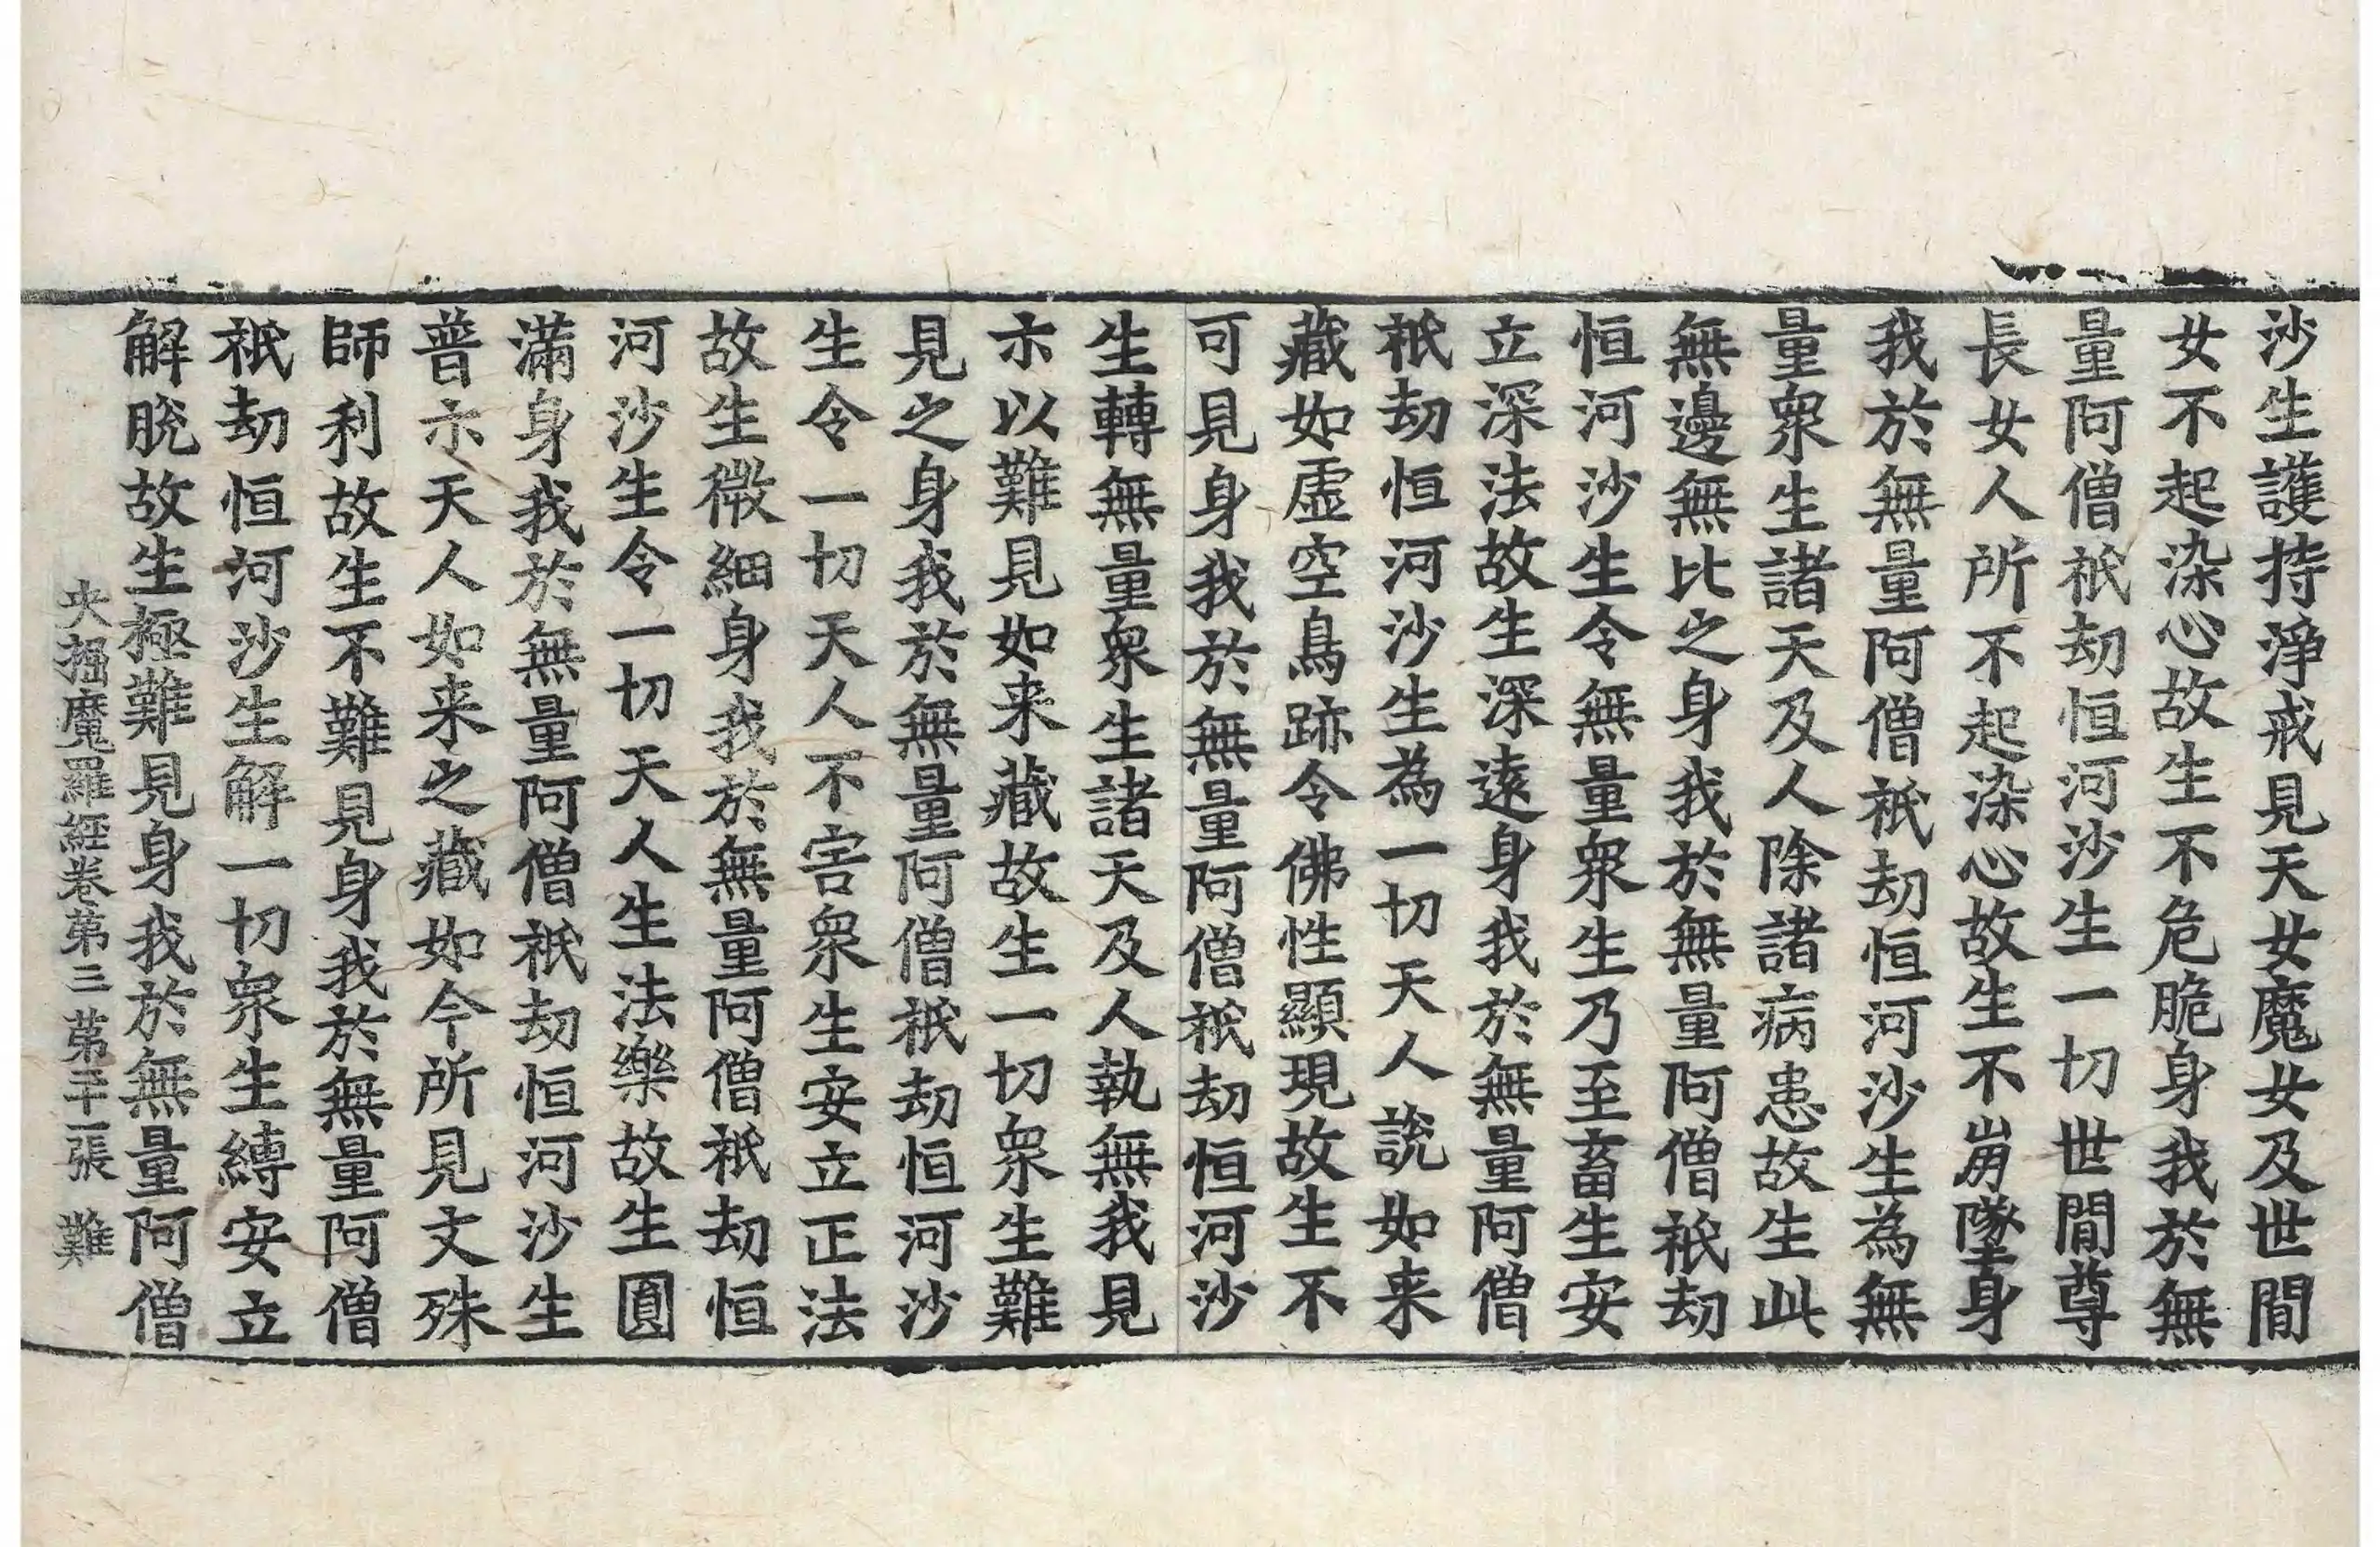 沙生護持淨戒見天女魔女及世間
女不起染心故生不危脆身我於無
量阿僧祇劫恒河沙生一切世間尊
長女人所不起染心故生不崩墜身
我於無量阿僧祇劫恒河沙生為無
量衆生諸天及人除諸病患故生此
無邊無比之身我於無量阿僧祇劫
恒河沙生令無量衆生乃至畜生安
立深法故生深遠身我於無量阿僧
祇劫恒河沙生為一切天人說如来
藏如虛空鳥跡令佛性顯現故生不
可見身我於無量阿僧祇劫恒河沙
生轉無量衆生諸天及人執無我見
示以難見如来藏故生一切衆生難
見之身我於無量阿僧祇劫恒河沙
生令一切天人不害衆生安立正法
故生微細身我於無量阿僧祇劫恒
河沙生令一切天人生法樂故生圓
滿身我於無量阿僧祇劫恒河沙生
普示天人如来之藏如今所見文殊
師利故生不難見身我於無量阿僧
祇劫恒河沙生解一切衆生縛安立
解脫故生極難見身我於無量阿僧
央掘魔羅経卷第三 第二十一張 難